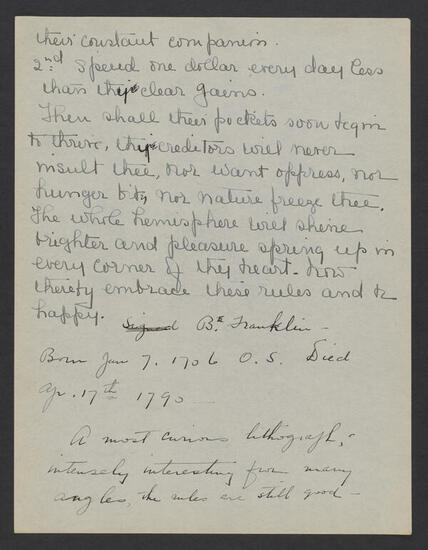 their constant companion.
2nd Spend one dollar every day less
than thy clear gains.
Then shall their pockets soon begin
to thrive, thy creditors will never
insult thee, nor want oppress, nor
hunger bite, nor nature freeze thee.
The whole hemisphere will shine
brighter and pleasure spring up in
every corner of thy heart. Now
thereby embrace these rules and be
happy.
Signed B. Franklin -
Born Jan 7. 1706 O.S. Died
Ap. 17th 1790
A most curious lithograph, -
intensely interesting from many
angles, the rules are still good -